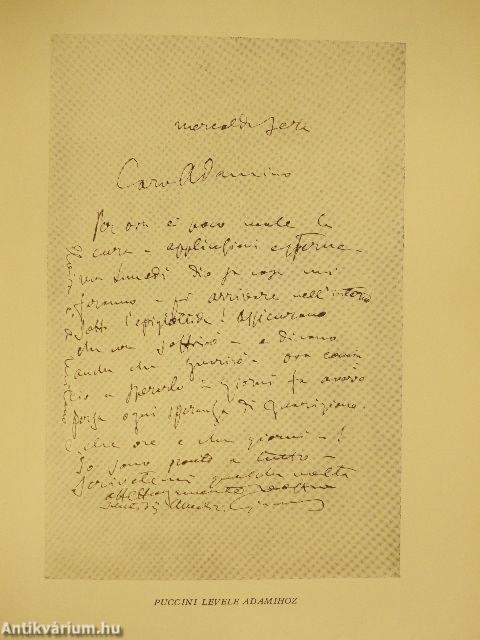 mercoldì sera
Caro Adamino
Per ora è poco male la
cura - applicazioni esterne -
ma lunedì Dio sa cosa mi
faranno - per arrivare nell'interno
sotto l'epiglottide! Assicurano
che non soffrirò - e dicono
anche che guarirò - ora comin
cio a sperarlo - giorni fa avevo
persa ogni speranza di guarigione.
e che ore e che giorni - !
Io sono pronto a tutto -
scrivetemi qualche volta
affettuosamente vostro
PUCCINI LEVELE ADAMIHOZ
Antikvárium.hu